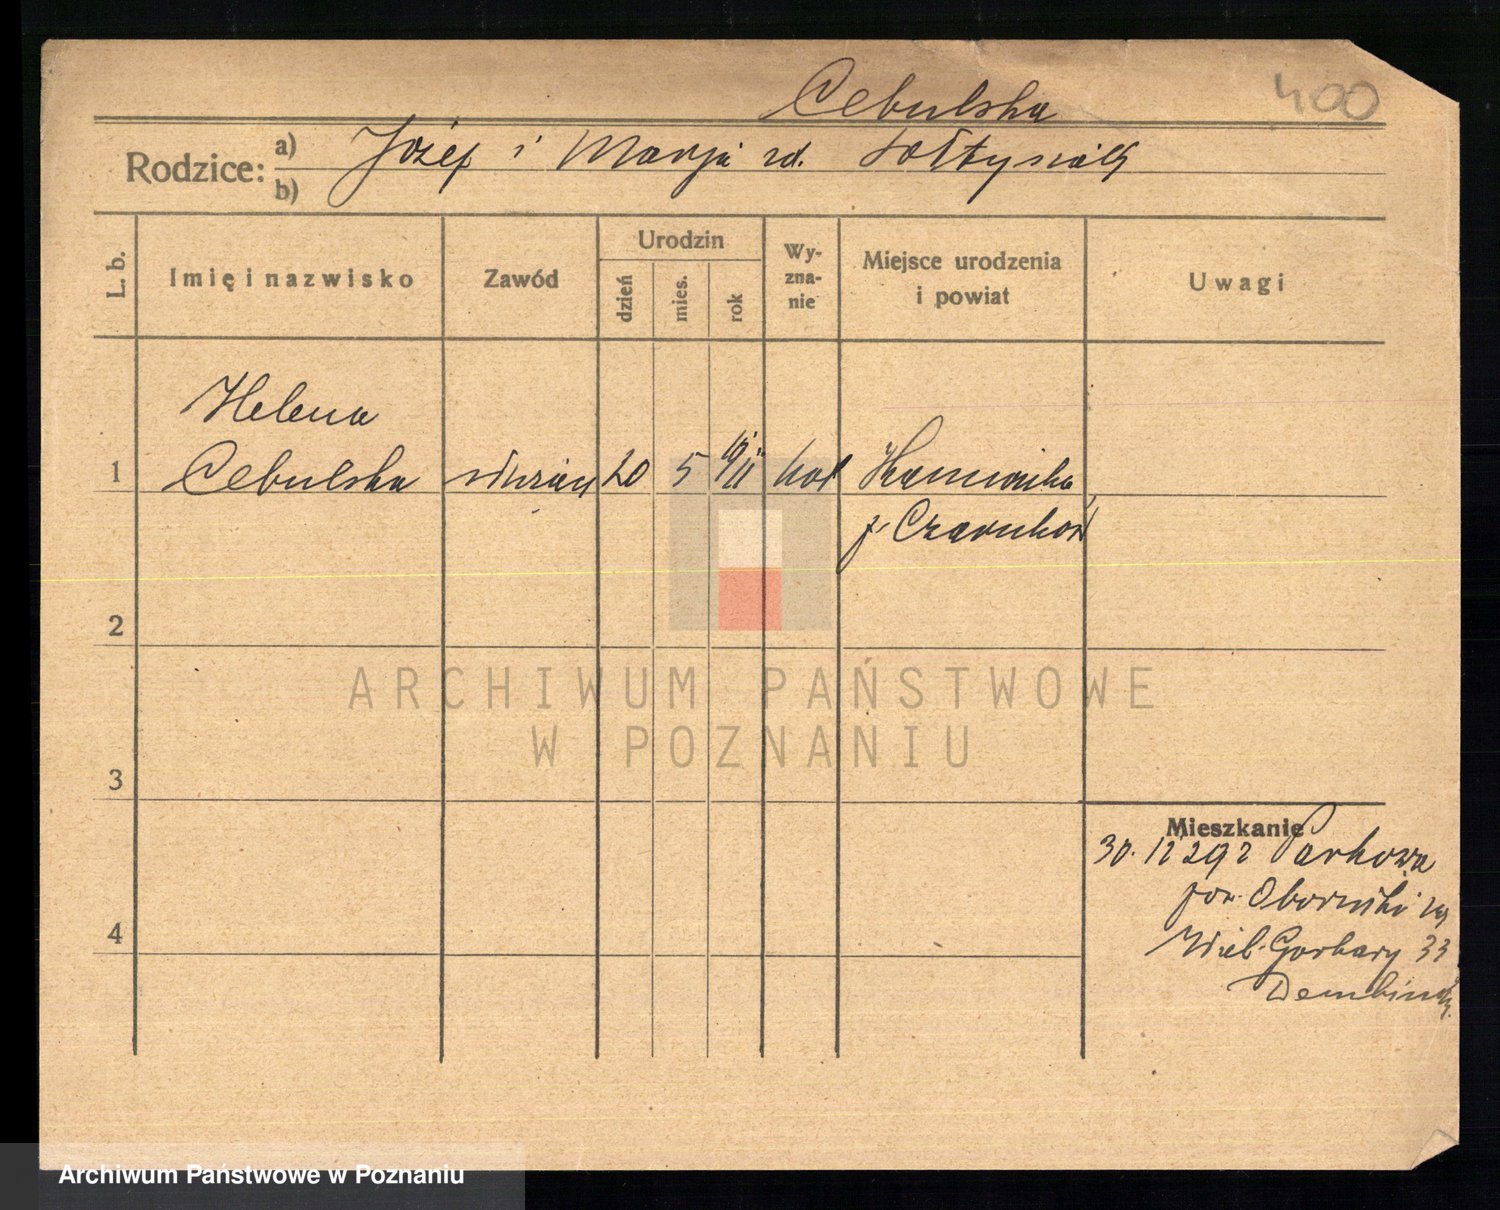 Cebulska
400
Rodzice: a) Józef i Marja zd. Sołtysiak
b)
L. b.
Imię i nazwisko
Zawód
Urodzin
dzień
mies.
rok
Wy-
zna-
nie
Miejsce urodzenia
i powiat
Uwagi
Helena
1 Cebulska służąca 20 5 kat Kamionka
p. Czarnków
2
ARCHIWUM PAŃSTWOWE
W POZNANIU
3
Mieszkanie
30. 12 292 Parkowa
pow. Obornicki
4
Wiel. Garbary 33
Archiwum Państwowe w Poznaniu